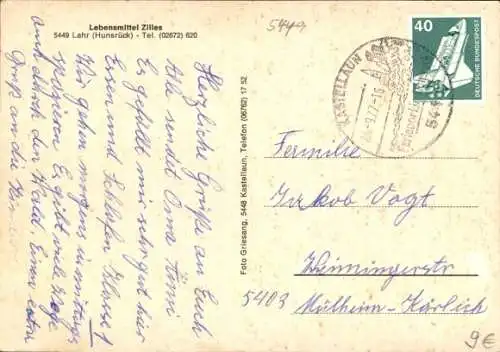 Lebensmittel Zilles
5449 Lahr (Hunsrück) - Tel. (02672) 620
5449
40
DEUTSCHE BUNDESPOST
KASTELLAUN
Herzliche Grüße an Euch
Alle sendet Oma Timi
Es gefällt mir sehr gut hier
Essen und Schlafen Klasse 1
Wir gehn morgens u mittags
spazieren Es gibt viele Wege
auch durch den Wald. Einen extra
Gruß an die Kinder
Foto Griesang, 5448 Kastellaun, Telefon (06762) 17 52
Familie
Jakob Vogt
Weimingerstr
5403 Mülheim-Kärlich
9€